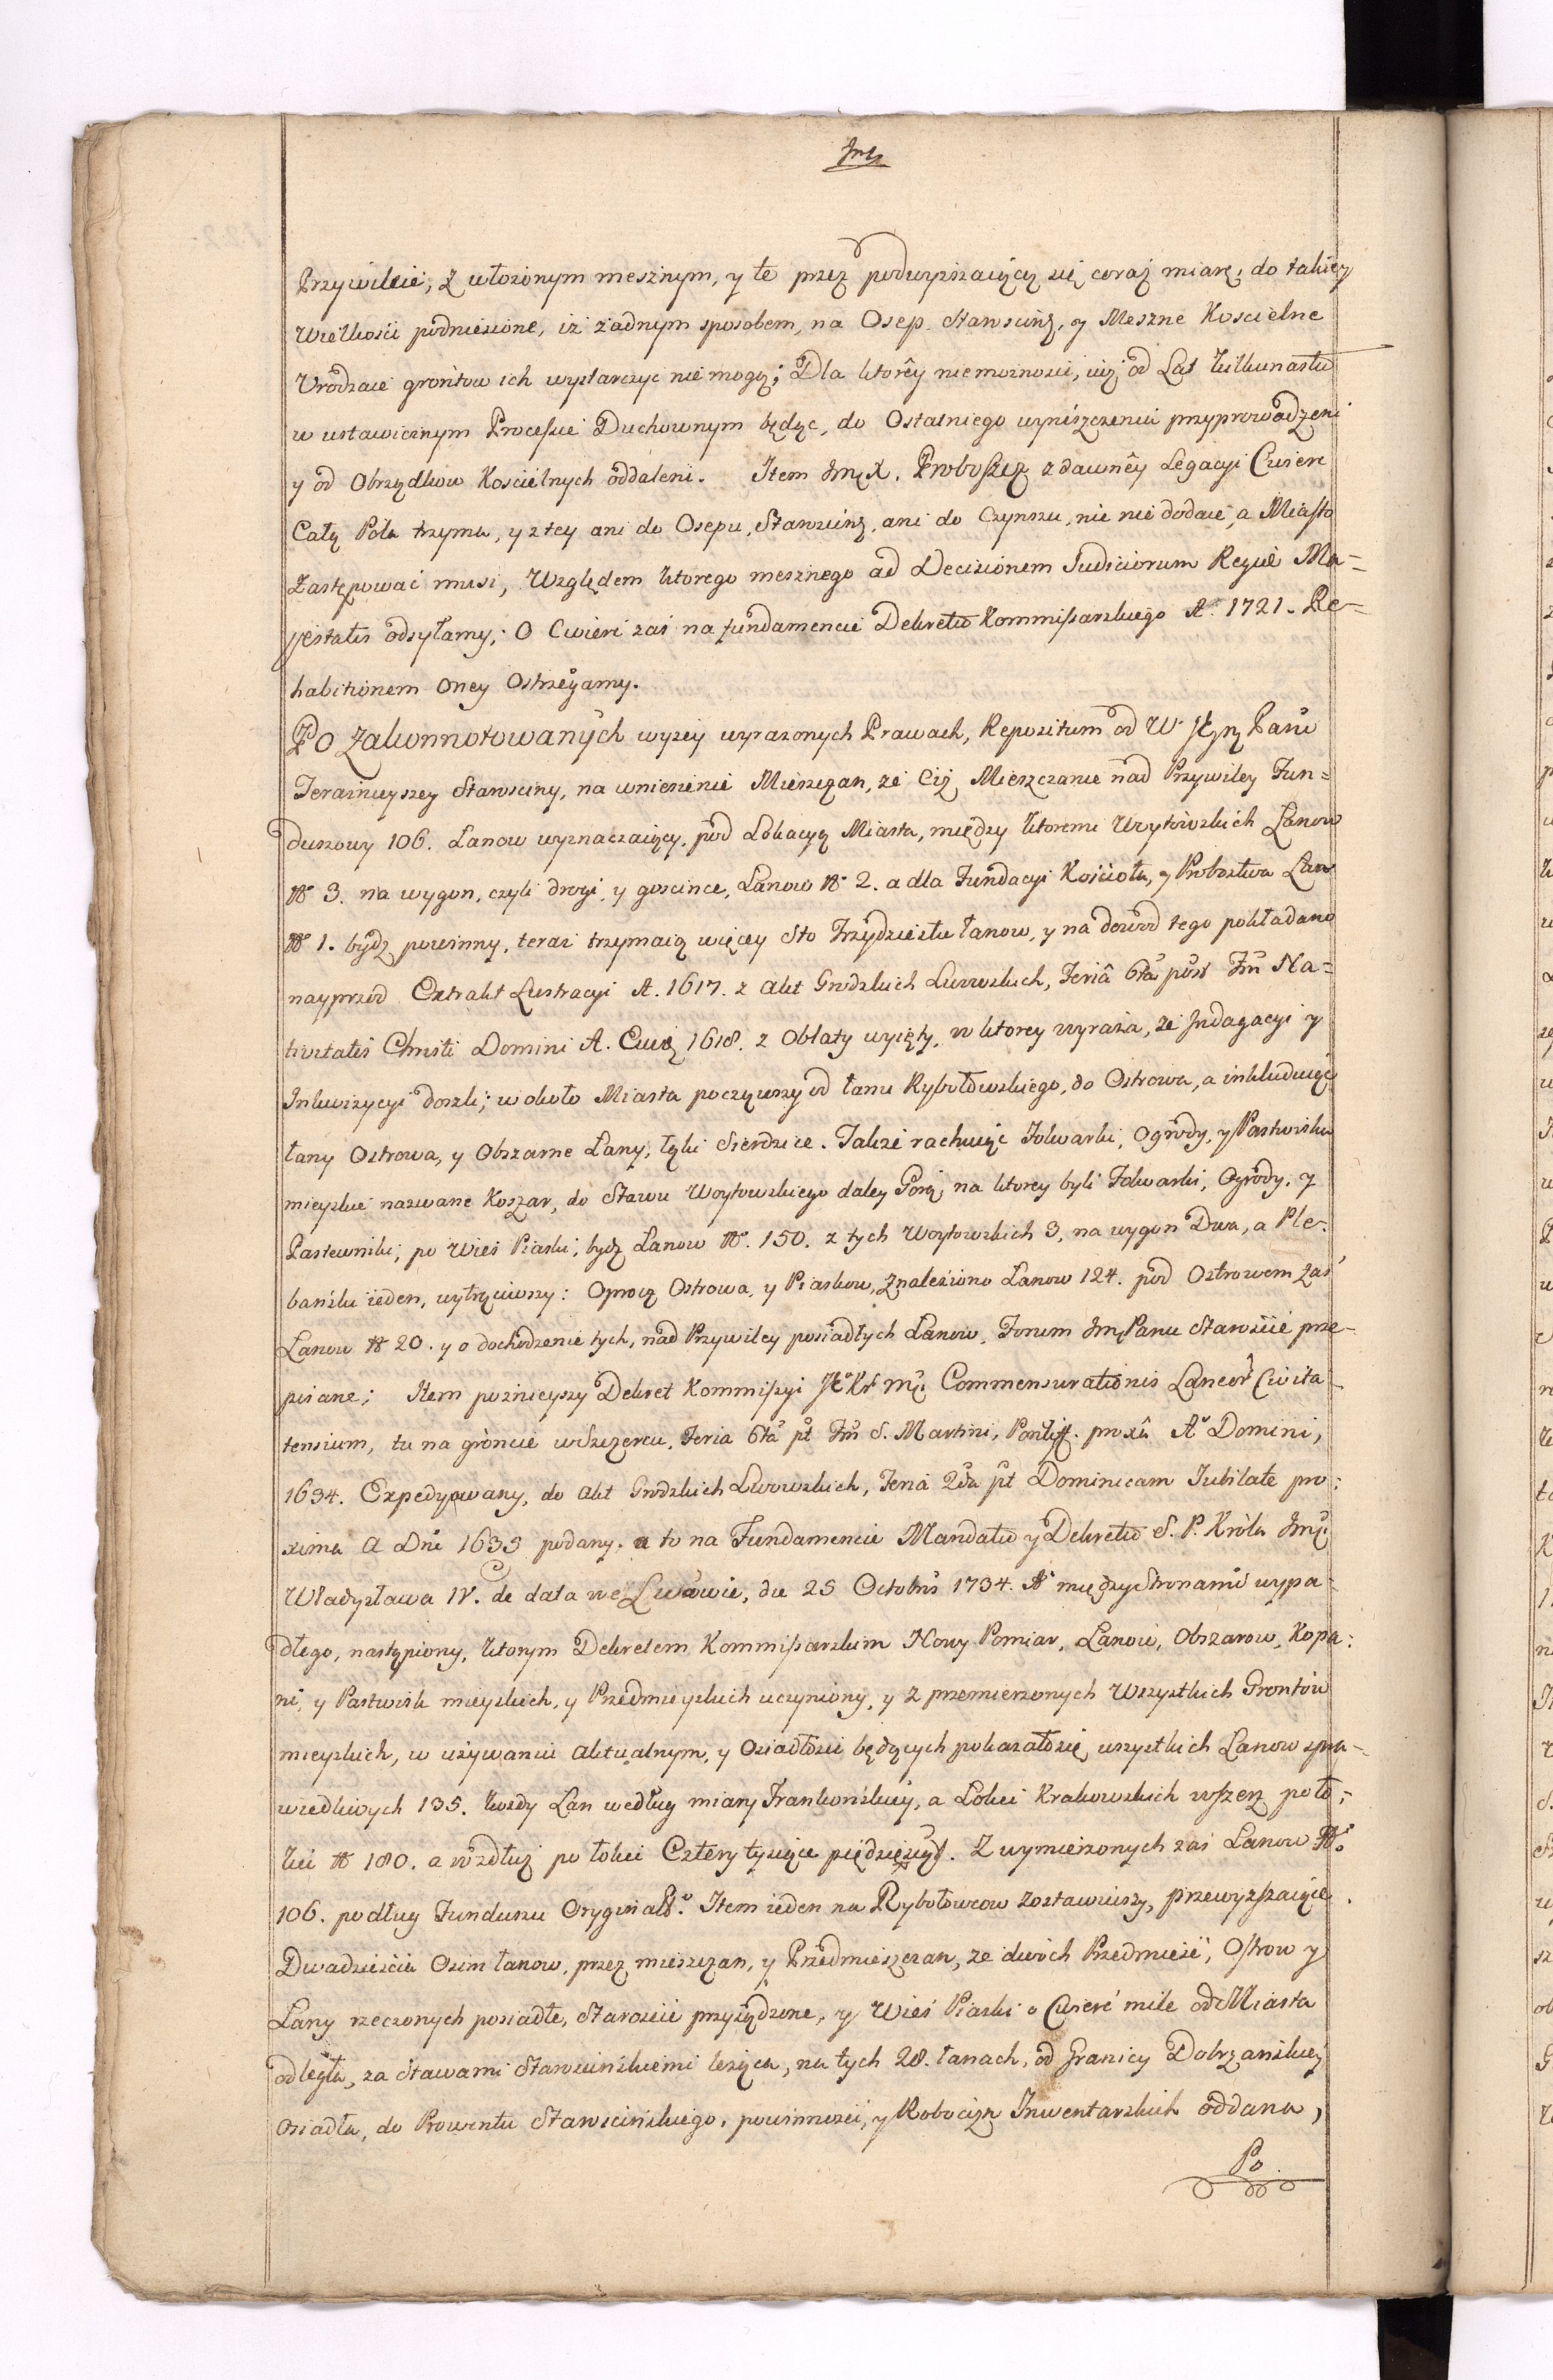 Przywileie, z włożonym mesznym, y te przez podwyższaiącą się coraz miarę, do takiey
Wielkości podniesione, iż żadnym sposobem, na Osep Starościnę, y Meszne Koscielne
Urodzaie grontow ich wystarczyc nie mogą; Dla ktorêy niemożnosci, iuż od Lat kilkunastu
w ustawicznym Processie Duchownym będąc, do Ostatniego wyniszczenia przyprowadzeni
y od Obrządkow Koscielnych oddaleni. Item Jmę X. Proboszcz z dawnêy Legacyi Cwierc
Całą Pola trzyma, y z tey ani do Osepu, Starościnę, ani do Czynszu, nic nie dodaie, a Miasto
Zastępować musi, Względem ktorego mesznego ad Decisionem Judiciorum Regiæ Ma=
jestatis odsyłamy; O Cwierć zaś na fundamencie Dekretu Kommissarskiego A° 1721. Re=
habitionem oney Ostrzegamy.
Po Zakonnotowanych wyzey wyrazonych Prawach, Repositum od W Jey Pani
Teraznieyszey Starosciny, na wniesienie Mieszczan, że Ciż Mieszczanie nad Przywiley Fun=
duszowy 106. Łanow wyznaczaiący, pod Lokacyą Miasta, między ktoremi Woytowskich Łanow
N° 3. na wygon, czyli drogi, y goscince, Łanow N° 2. a dla Fundacyi Kościoła, y Probostwa Łan
N° 1. bydz powinny, teraz trzymaią więcey Sto Trzydziestu łanow, y na dowod tego pokładano
nayprzod Extrakt Lustracyi A. 1617. z Akt Grodzkich Lwowskich, Feriâ 6ta post Fm Na=
tivitatis Christi Domini A. Eius 1618. z Oblaty wyięty, w ktorey wyraża, ze Indagacyi y
Inkwizycyi doszli; w około Miasta począwszy od łanu Rybołowskiego, do Ostrowa, a inkluduiąc
łany Ostrowa, y Obszarne Łany, łąki Sierdzice. Także rachuiąc Folwarki, Ogrody, y Pastwiska
mieyskie nazwane Koszar, do Stawu Woytowskiego daley Gorą, na ktorey byli Folwarki, Ogrody, y
Pastewniki, po Wieś Piaski, bydz Łanow N°. 150. z tych Woytowskich 3, na wygon Dwa, a Ple=
bański ieden, wytrąciwszy: Oprocz Ostrowa, y Piaskow, Znaleziono Łanow 124. pod Ostrowem zaś
Łanow N° 20. y o dochodzenie tych, nad Przywiley posiadłych Łanow, Forum Jmę Panu Staroscie prze=
pisane; Item poznieyszy Dekret Kommissyi JK° Kr Mci Commensurationis Laneor Civita=
tensium, tu na groncie w Szczercu, Feria 6ta pt Fm S. Martini, Pontiff. proxâ A° Domini,
1634. Expedyowany, do Akt Grodzkich Lwowskich, Feria 2da pt Dominicam Jubilate pro:
xima A Dni 1635 podany, a to na Fundamencie Mandatu y Dekretu S. P. Króla Jmci
Władysława IV. de data we Lwowie, die 25 Octobris 1734. A° między Stronami wypa=
dłego, nastąpiony, ktorym Dekretem Kommissarskim Nowy Pomiar, Łanow, Obszarow, Kopa:
ni, y Pastwisk mieyskich, y Przedmieyskich uczyniony, y z przemierzonych Wszystkich Grontow
mieyskich, w używaniu aktualnym, y Osiadłości będących pokazało się wszystkich Łanow spra=
wiedliwych 135. każdy Łan według miary Frankońskiey, a Łokci Krakowskich wszerz po ło=
kci N° 180. a wzdłuż po łokci Cztery tysiące pięćdziesiąt. Z wymierzonych zaś Łanow N°
106. podług Funduszu Oryginal°. Item ieden na Rybołowcow zostawiwszy, przewyższaiące
Dwadzieścia Osim łanow, przez mieszczan, y Przedmieszczan, ze dwoch Przedmieść, Ostrow y
Łany rzeczonych posiadłe, Staroscie przysądzone, y Wieś Piaski o Cwierć mile od Miasta
odległa, za Stawami Starościńskiemi leżąca, na tych 28. łanach, od Granicy Dobrzańskiey
osiadła, do Prowentu Starościńskiego, powinności, y Robocizn Inwentarskich oddana,
Po